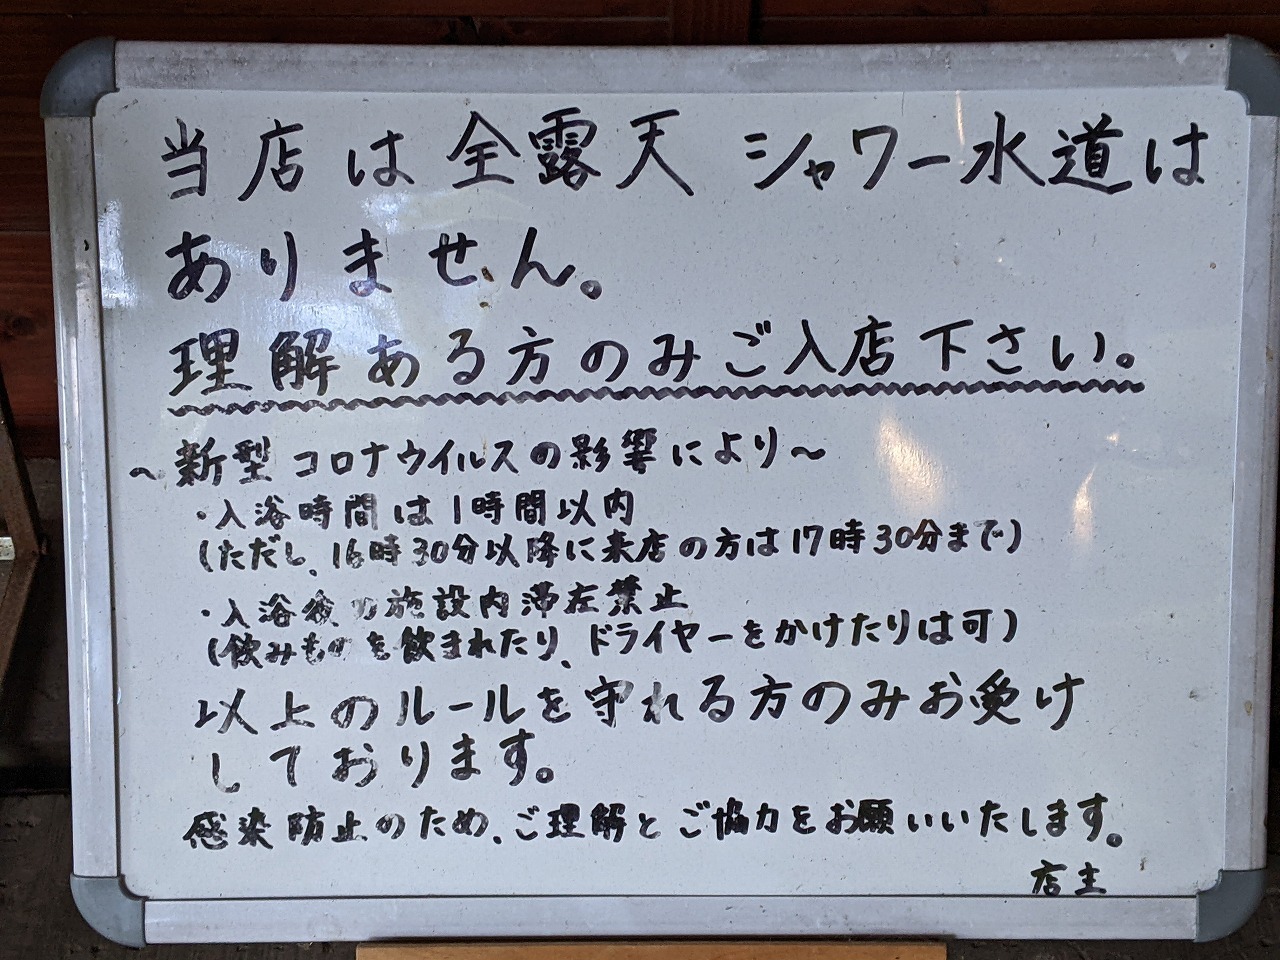 当店は全露天 シャワー水道は
ありません。
理解ある方のみご入店下さい。
～新型コロナウイルスの影響により～
・入浴時間は1時間以内
(ただし、16時30分以降に来店の方は17時30分まで)
・入浴後の施設内滞在禁止
(飲みものを飲まれたり、ドライヤーをかけたりは可)
以上のルールを守れる方のみお受け
しております。
感染防止のため、ご理解とご協力をお願いいたします。
店主